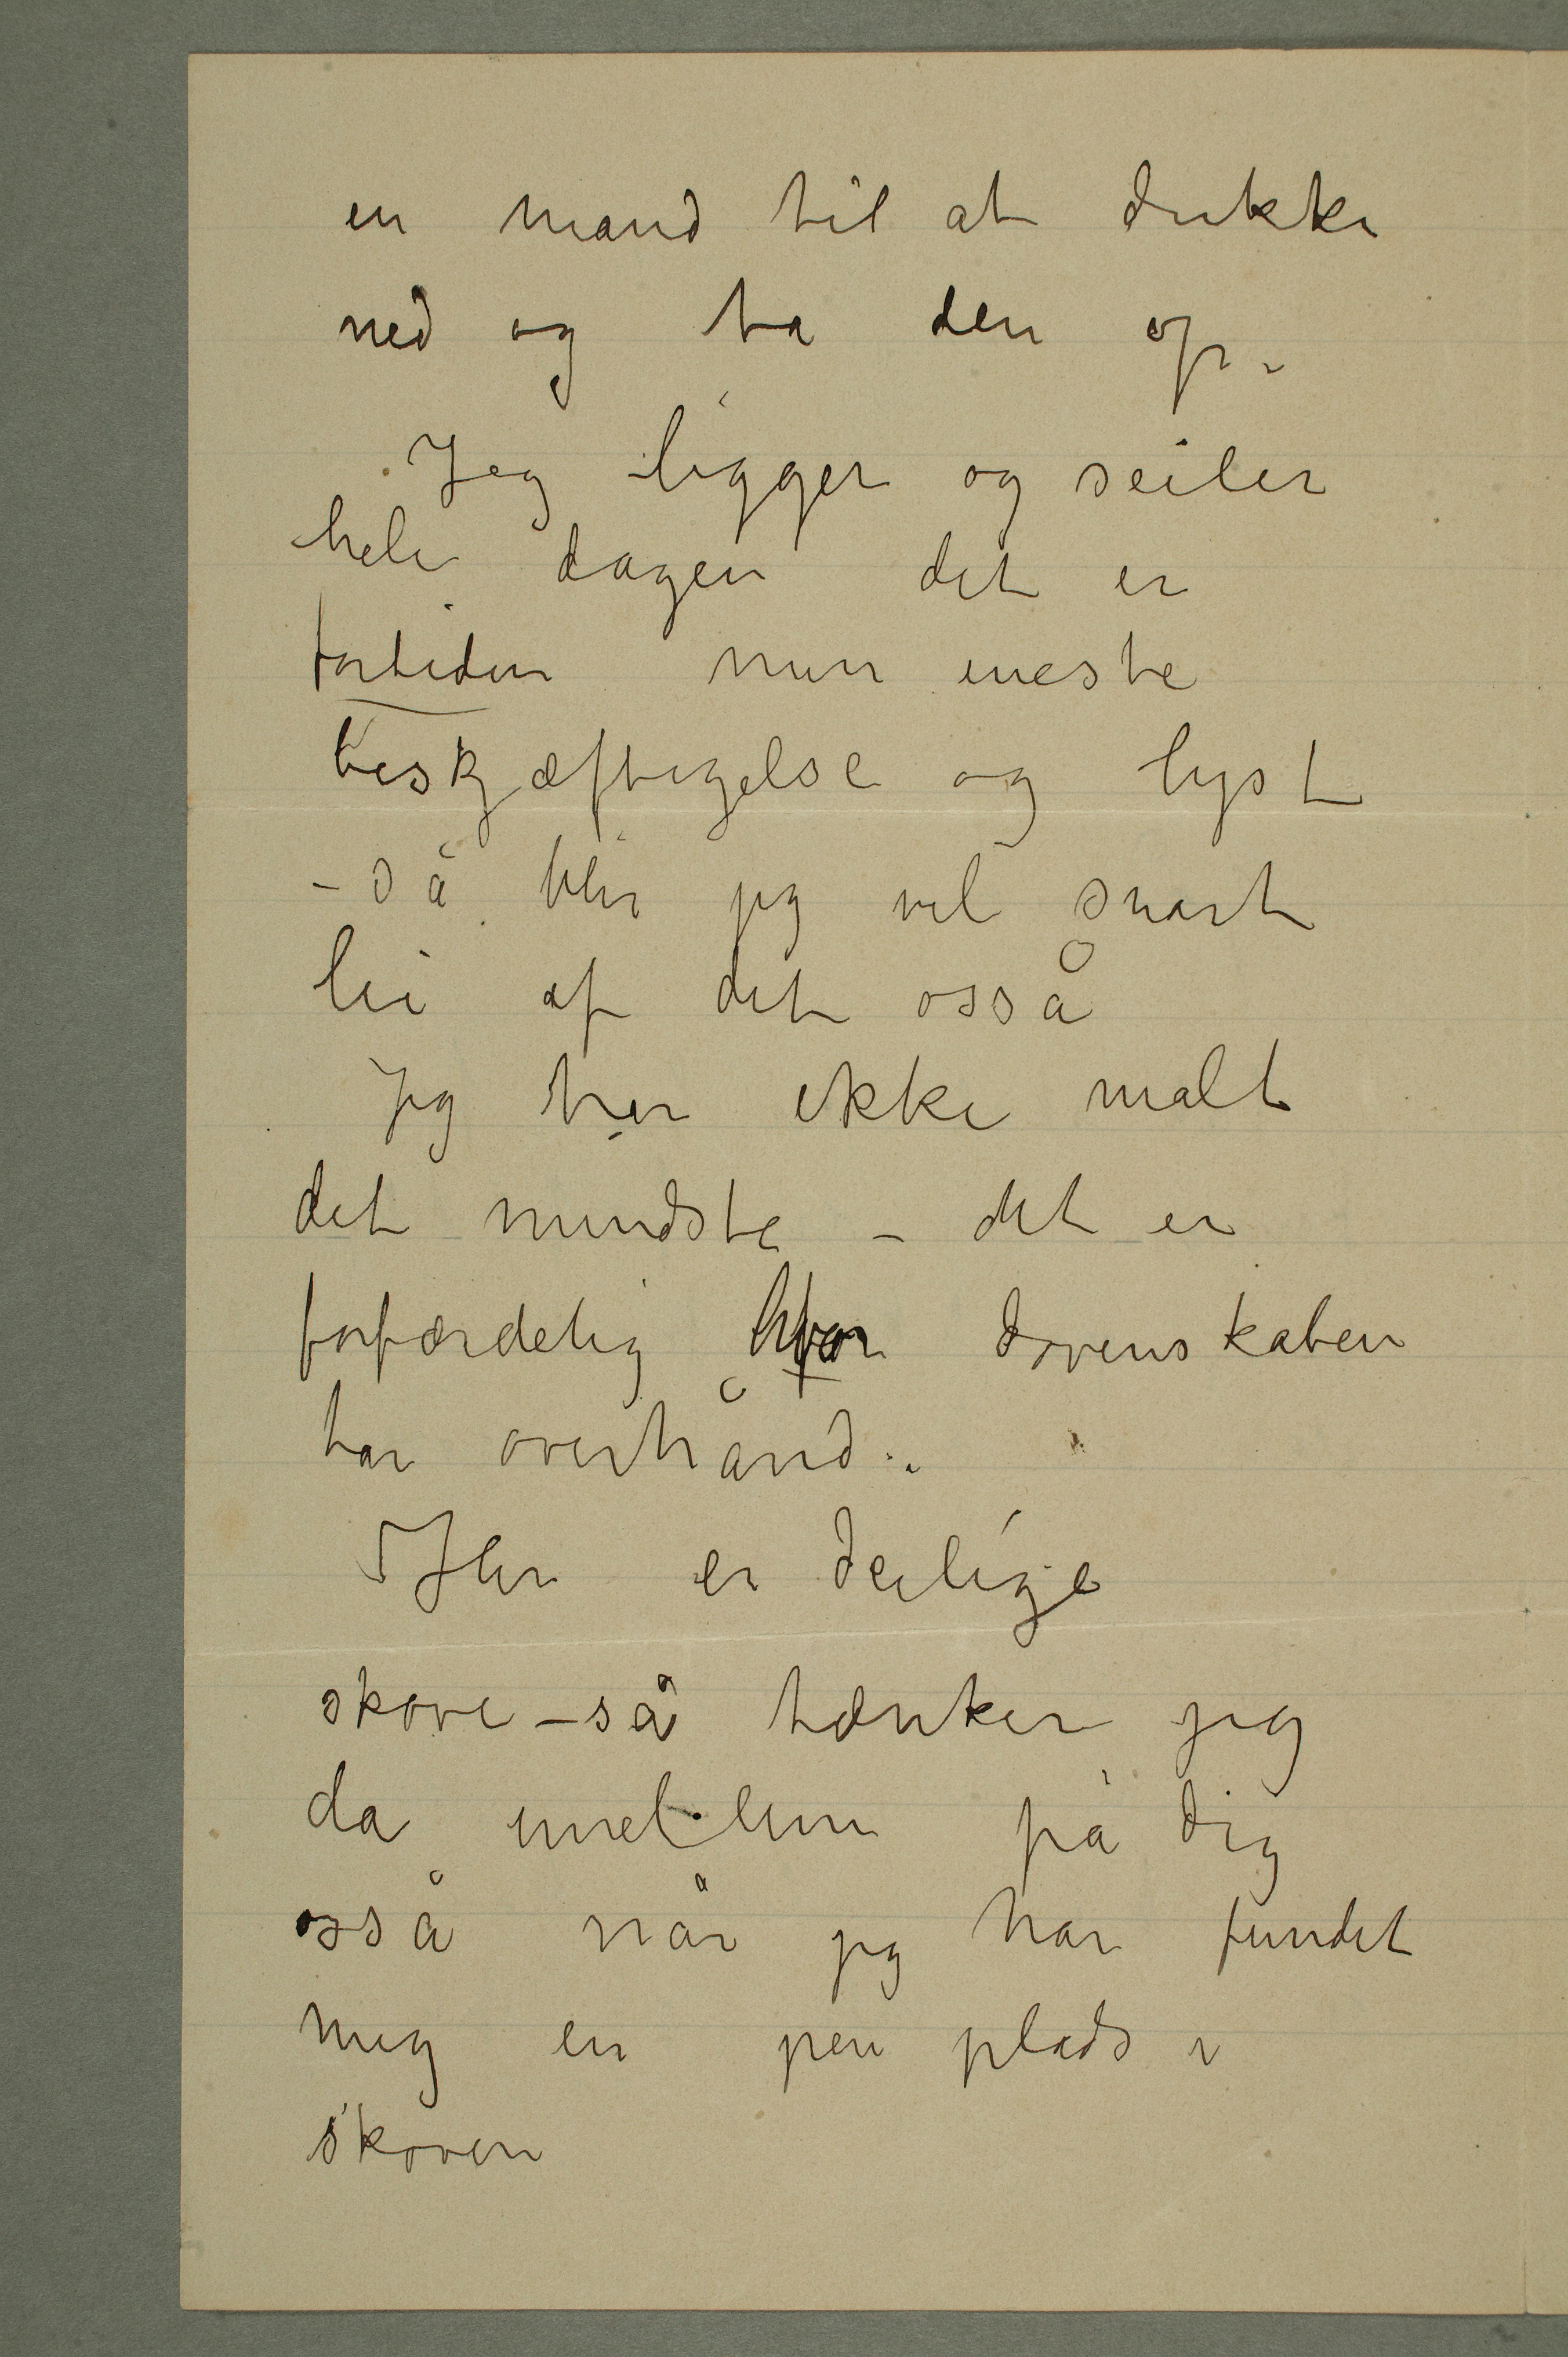 en mand til at dukke
ned og ta den op.
Jeg ligger og seiler
hele dagen det er
fortiden min eneste
beskjæftigelse og lyst
– så blir jeg vel snart
lei af det osså
Jeg har ikke malt
det mindste – det er
forfærdelig hvor dovenskaben
tar overhånd.
Her er deilige
skove – så tænker jeg
da imellem på dig
osså når jeg har fundet
mig en pen plads i
skoven